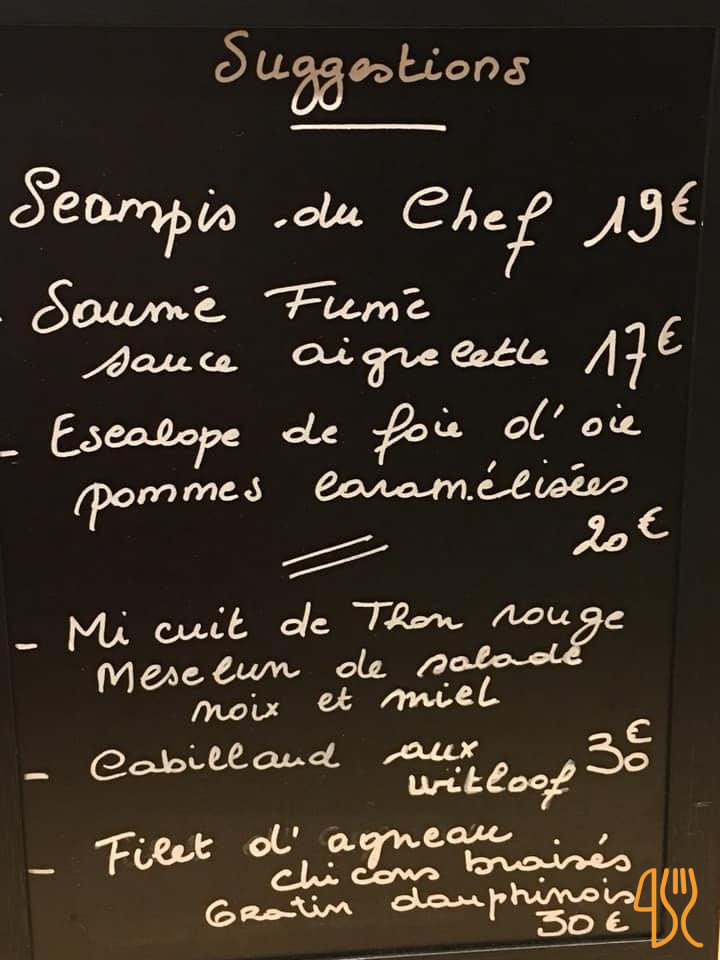 Suggestions
Scampis du Chef 19€
- Saumé Fumé
sauce aigrelette 17€
- Escalope de foie d'oie
pommes caramélisées
20€
- Mi cuit de Thon rouge
Mesclun de salade
noix et miel
- Cabillaud aux 30€
witloof
- Filet d'agneau
chicons braisés
Gratin dauphinois
30€